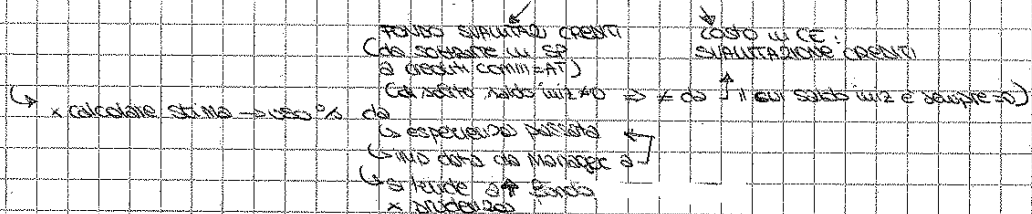 FONDO SVALUTAZ CREDITI
(da sottrarre in SP
a crediti comm = AT)
(di solito saldo iniz ≠ 0 => ≠ da
COSTO in CE:
SVALUTAZIONE CREDITI
il cui saldo iniz è sempre = 0)
↳ x calcolare stima → uso % da
↳ esperienza passata
↳ info data da Manager
↳ si tende a ↑ fondo
x prudenza